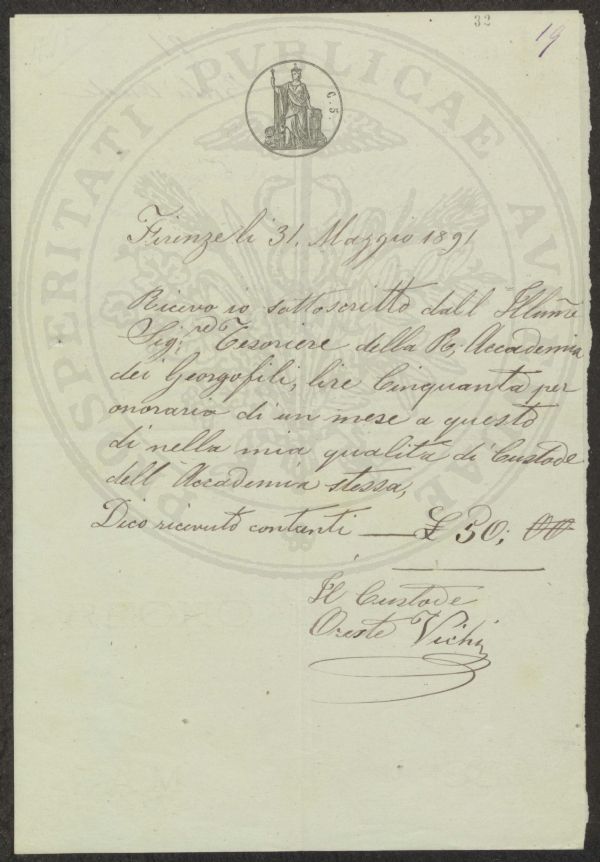 32
19
PROSPERITATI PUBLICAE AUGENDAE
C. 5.
Firenze li 31. Maggio 1891
Ricevo io sottoscritto dall Illuñe
Sig.re Tesoriere della R. Accademia
dei Georgofili, lire Cinquanta per
onorario di un mese a questo
di nella mia qualità di Custode
dell Accademia stessa,
Dico ricevuto contanti — £ 50; 00
Il Custode
Oreste Vichi